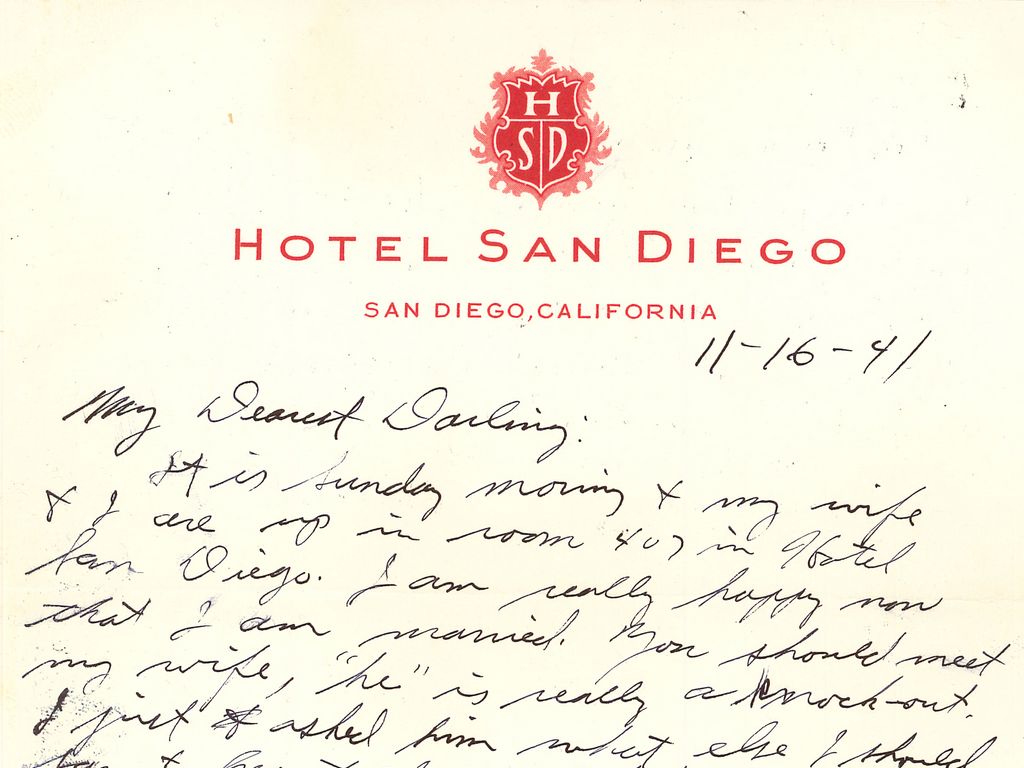 H
S D
HOTEL SAN DIEGO
SAN DIEGO, CALIFORNIA
11-16-41
My Dearest Darling:
It is Sunday morning & my wife
& I are up in room 407 in Hotel
San Diego. I am really happy now
that I am married. You should meet
my wife, "he" is really a knock-out.
I just asked him what else I should